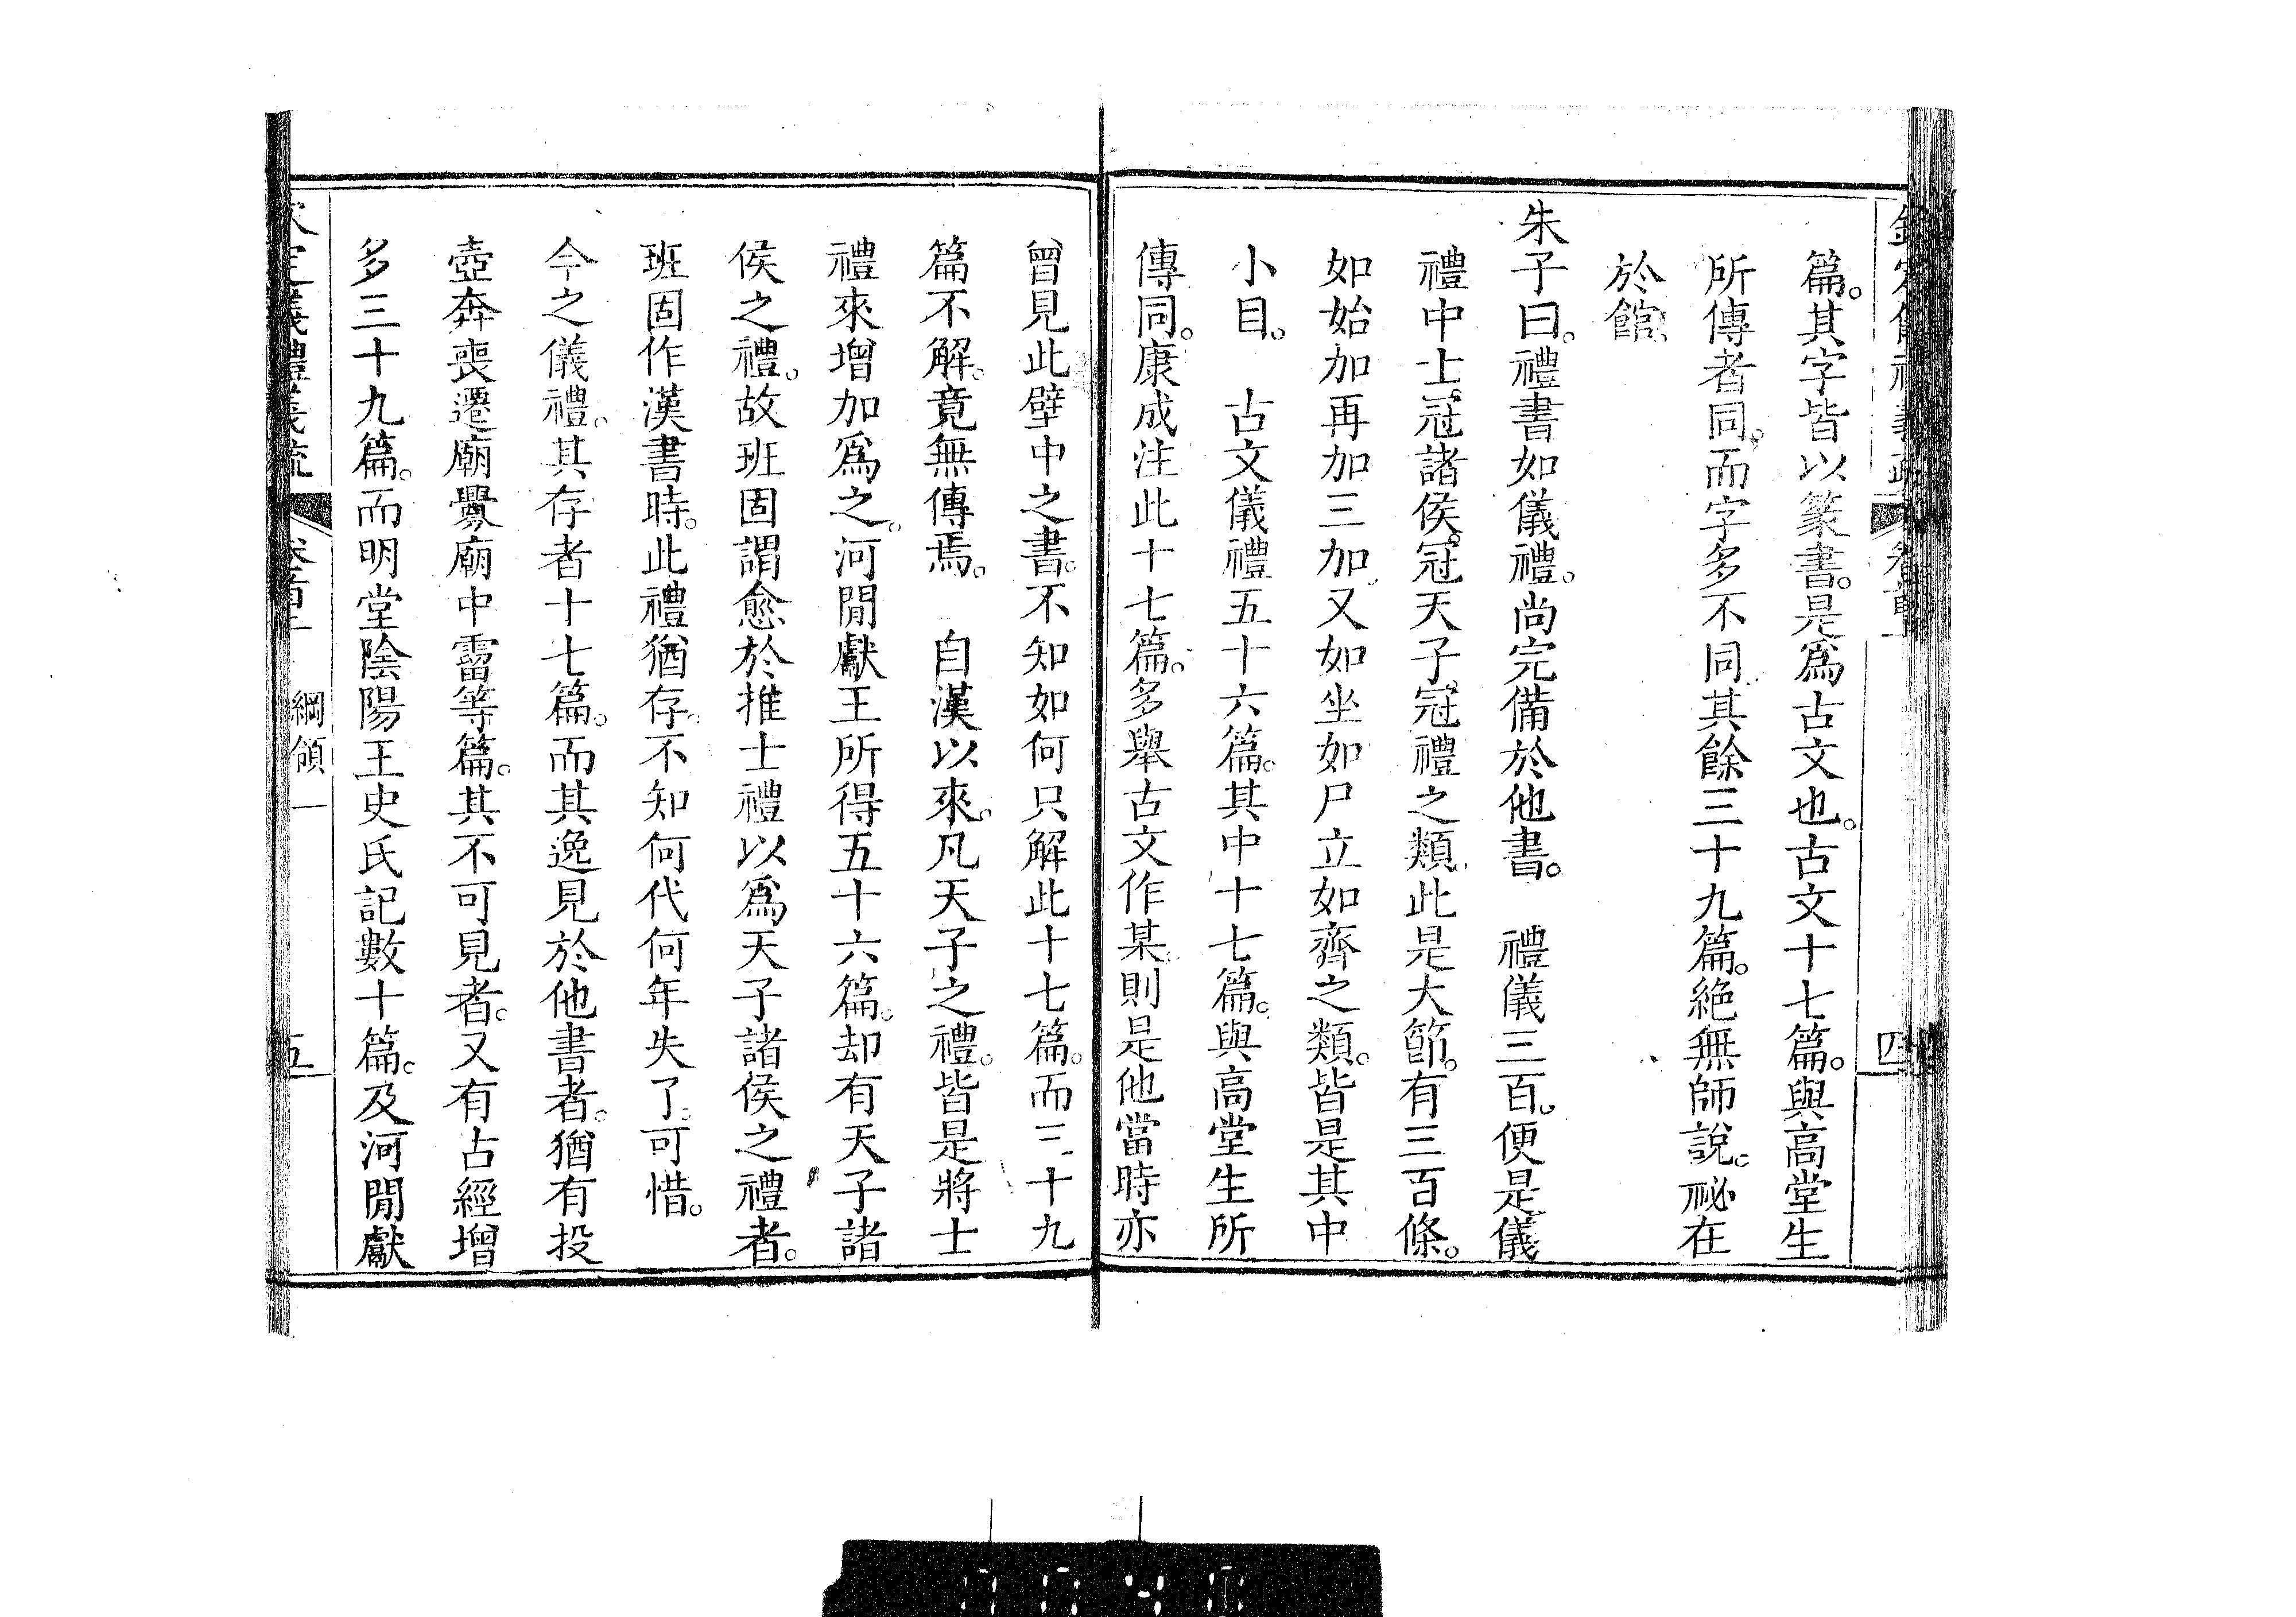 篇。其字皆以篆書。是爲古文也。古文十七篇。與高堂生
所傳者同。而字多不同。其餘三十九篇。絶無師說。祕在
於館。
朱子曰。禮書如儀禮。尚完備於他書。　禮儀三百。便是儀
禮中士冠諸侯冠天子冠禮之類。此是大節。有三百條。
如始加再加三加。又如坐如尸立如齊之類。皆是其中
小目。　古文儀禮五十六篇。其中十七篇。與高堂生所
傳同。康成注此十七篇。多舉古文作某。則是他當時亦
曾見此壁中之書。不知如何只解此十七篇。而三十九
篇不解。竟無傳焉。　自漢以來。凡天子之禮。皆是將士
禮來增加爲之。河閒獻王所得五十六篇。却有天子諸
侯之禮。故班固謂愈於推士禮以爲天子諸侯之禮者。
班固作漢書時。此禮猶存。不知何代何年失了。可惜。
今之儀禮。其存者十七篇。而其逸見於他書者。猶有投
壺奔喪遷廟釁廟中霤等篇。其不可見者。又有古經增
多三十九篇。而明堂陰陽王史氏記數十篇。及河閒獻
綱領一
五